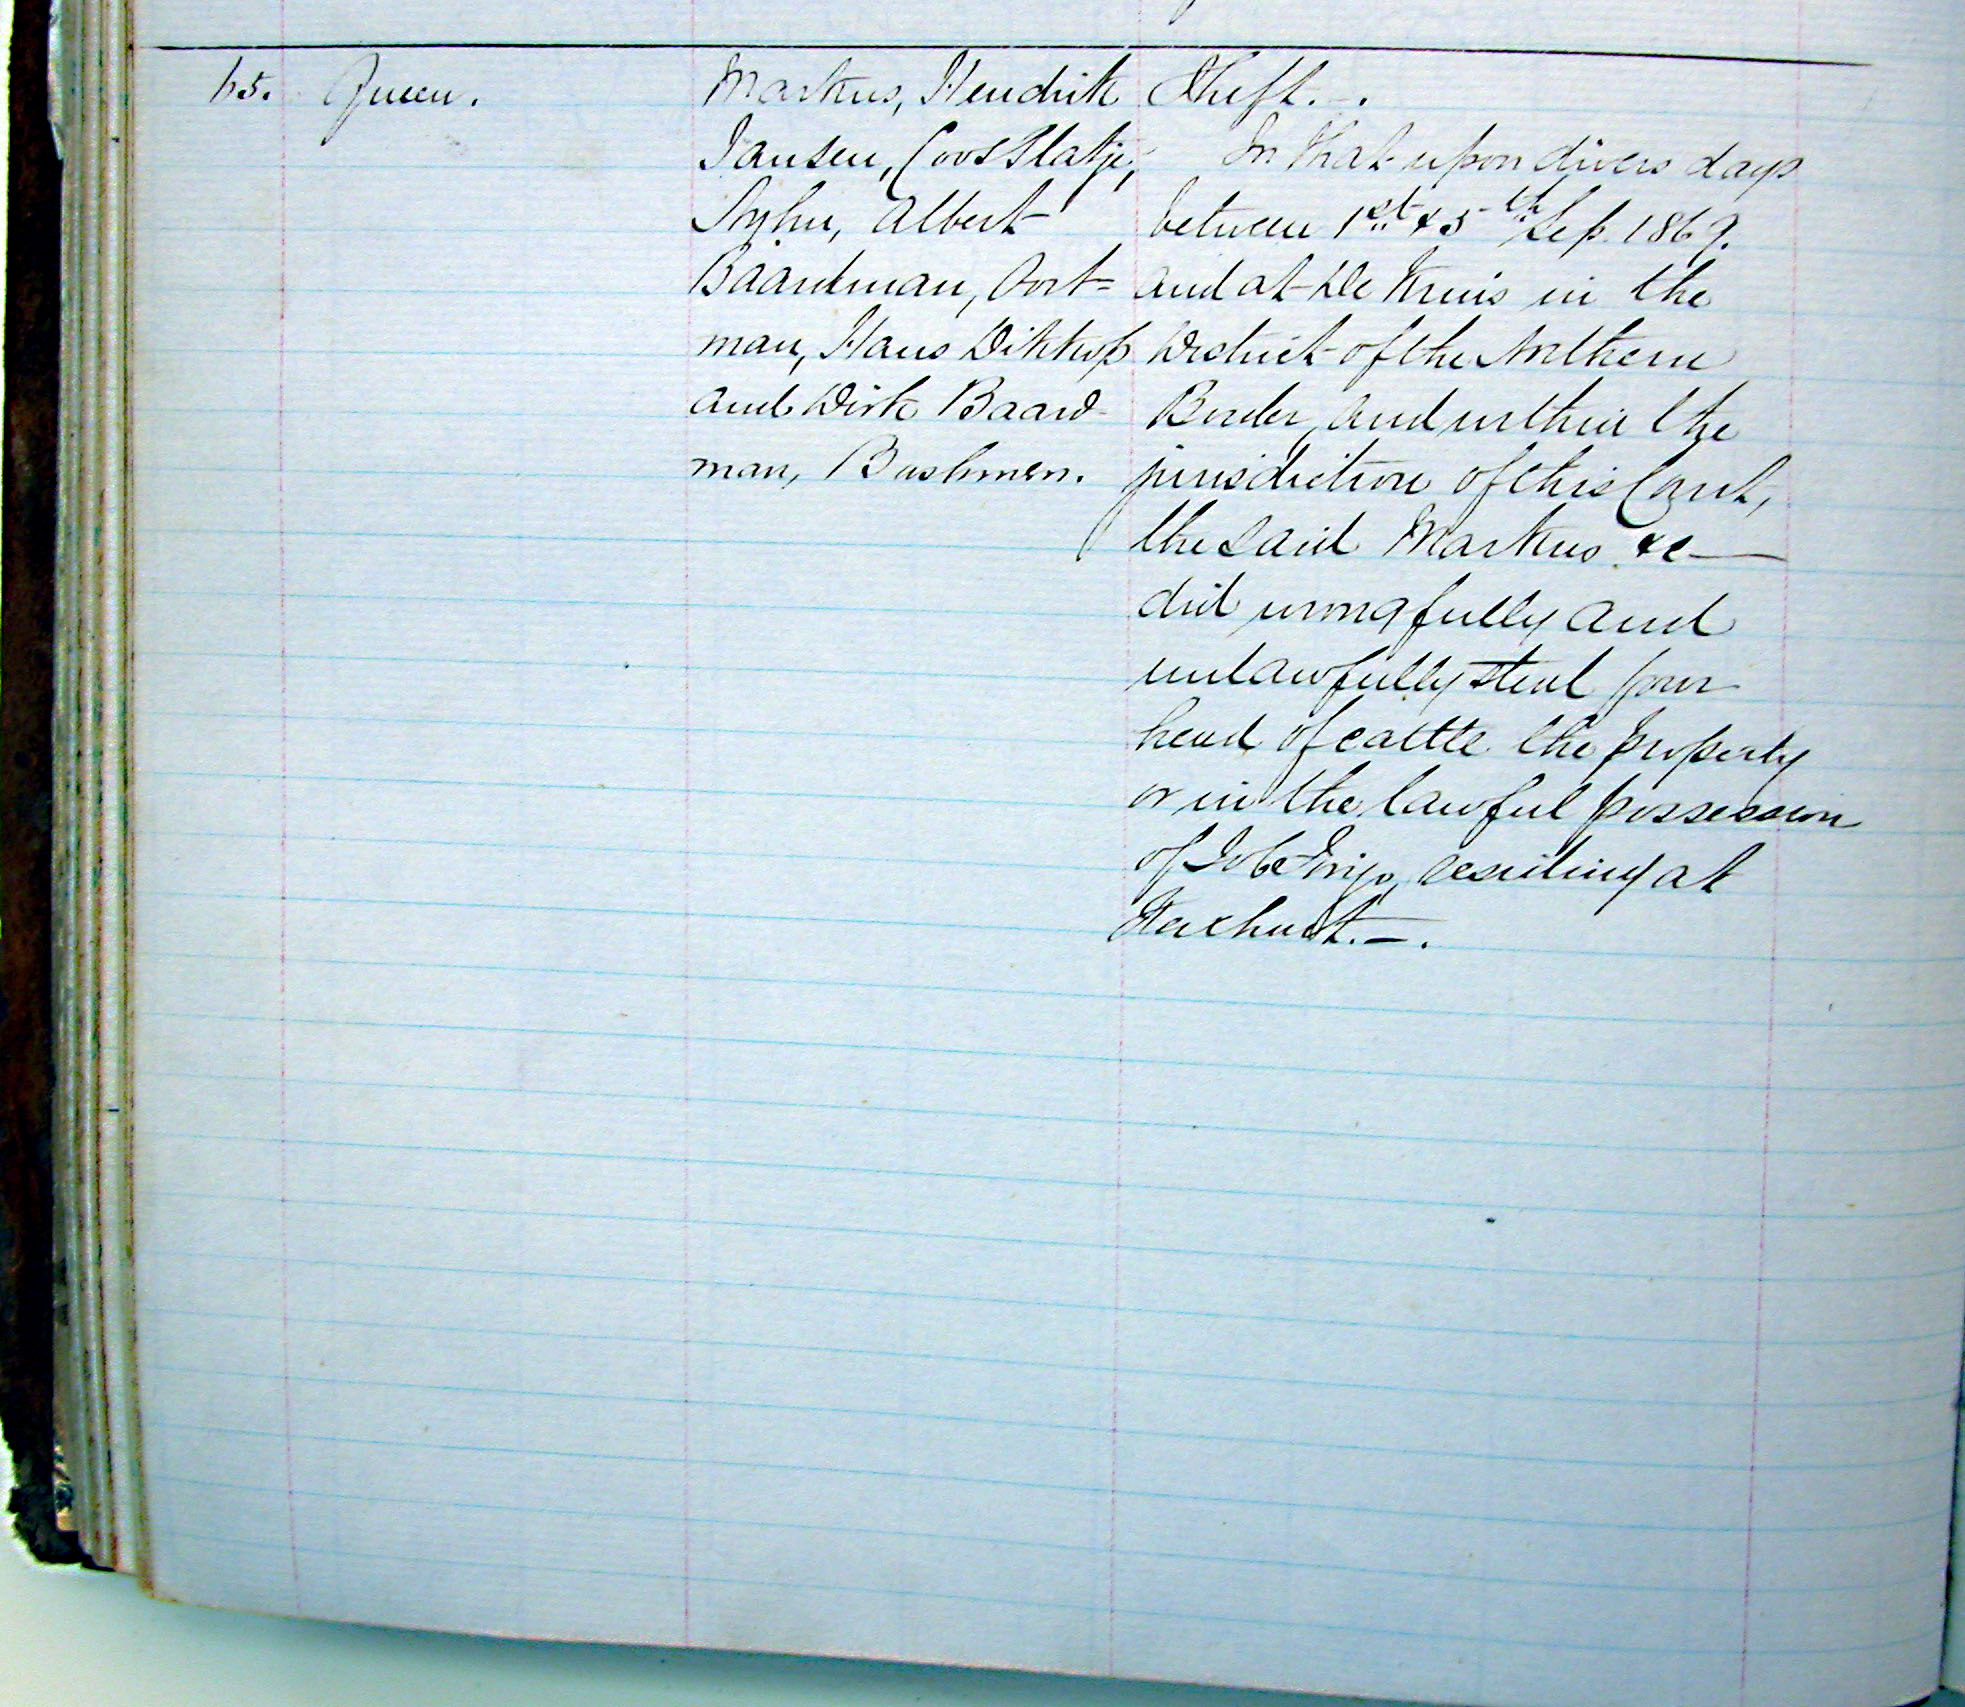 65.
Queen.
Markus, Hendrik
Jansen, Coos Platje,
Syhu, Albert
Baardman, Oort=
man, Hans Dikkop
and Dirk Baard-
man, Bushmen.
Theft.-.
In that upon divers days
between 1st & 5th Sep. 1869.
and at De Kruis in the
District of the Northern
Border, and within the
jurisdiction of this Court,
the said Markus &c—
did wrongfully and
unlawfully steal four
head of cattle the property
or in the lawful possession
of residing at